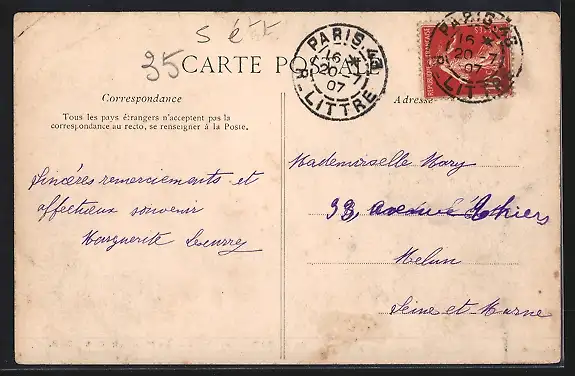 5 étt
35
CARTE POSTALE
PARIS 43
16 *
20 - 7
07
R. LITTRE
PARIS 43
16 *
20 - 7
07
R. LITTRE
Correspondance
Tous les pays étrangers n'acceptent pas la
correspondance au recto, se renseigner à la Poste.
Sincères remerciements et
affectueux souvenir
Marguerite
Adresse
Mademoiselle Mary
33, avenue Thiers
Melun
Seine-et-Marne